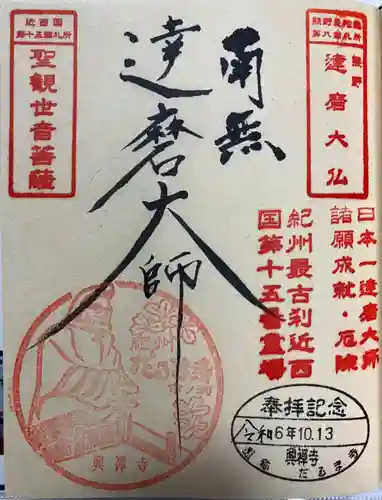 熊野曼荼羅
第八番札所
熊野
達磨大仏
南無
達磨大師
近西国
第十五番札所
聖観世音菩薩
日本一達磨大師
諸願成就・厄除
紀州最古刹近西
国第十五番霊場
紀州
興禅寺
奉拝記念
令和6年10.13
興禅寺
だるま寺